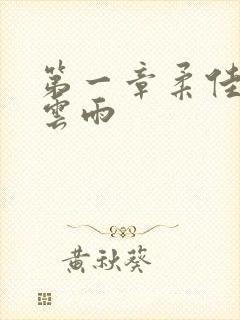 第一章柔佳
雲雨
黃秋葵